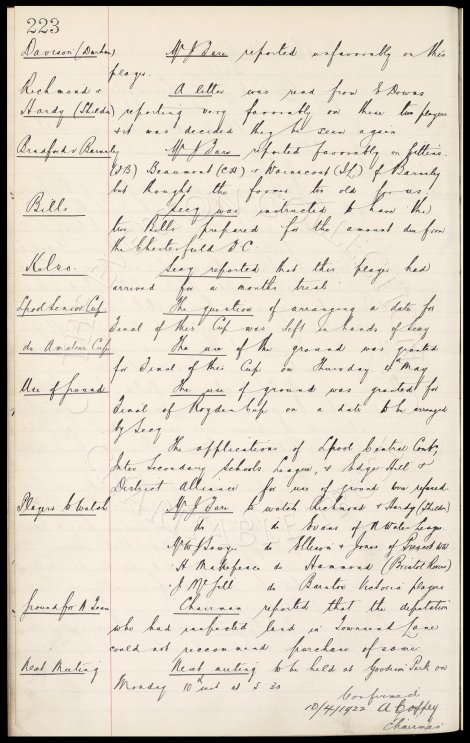 223
Davison (Durham) Mr J Dare reported unfavorably on this
player.
Richmond & A letter was read from E Downs
Hardy (Shildon) reporting very favorably on these two players
& it was decided they be seen again
Bradford v Barnsley Mr J Dare reported favorably on Gittins
(I B) Beaumont (C H) & Wainscoat (I L) of Barnsley
but thought the former too old for us
Bills Secy was instructed to have the
two Bills prepared for the amount due from
the Chesterfield F.C.
Kelso. Secy reported that this player had
arrived for a months trial
Lpool Senior Cup The question of arranging a date for
Final of this Cup was left in hands of Secy
do Amateur Cup The use of the ground was granted
for Final of this Cup on Thursday 4th May
Use of Ground The use of ground was granted for
Final of Roydon Cup on a date to be arranged
by Secy
The applications of Lpool Central Cont,
Inter Secondary Schools League, & Edge Hill &
District Alliance for use of ground were refused
Players to Watch Mr J Dare to watch Richmond & Hardy (Shildon)
do do Evans of N Wales League
Mr W J Sawyer do Ellison & Jones of Prescot
H Makepeace do Hammond (Bristol Rovers)
J McGill do Barnton Victoria players
Ground for A Team Chairman reported that the deputation
who had inspected land in Townsend Lane
could not recommend purchase of same
Next Meeting Next meeting to be held at Goodison Park on
Monday 10th inst at 5 30
Confirmed
10/4/1922 A Coffey
Chairman